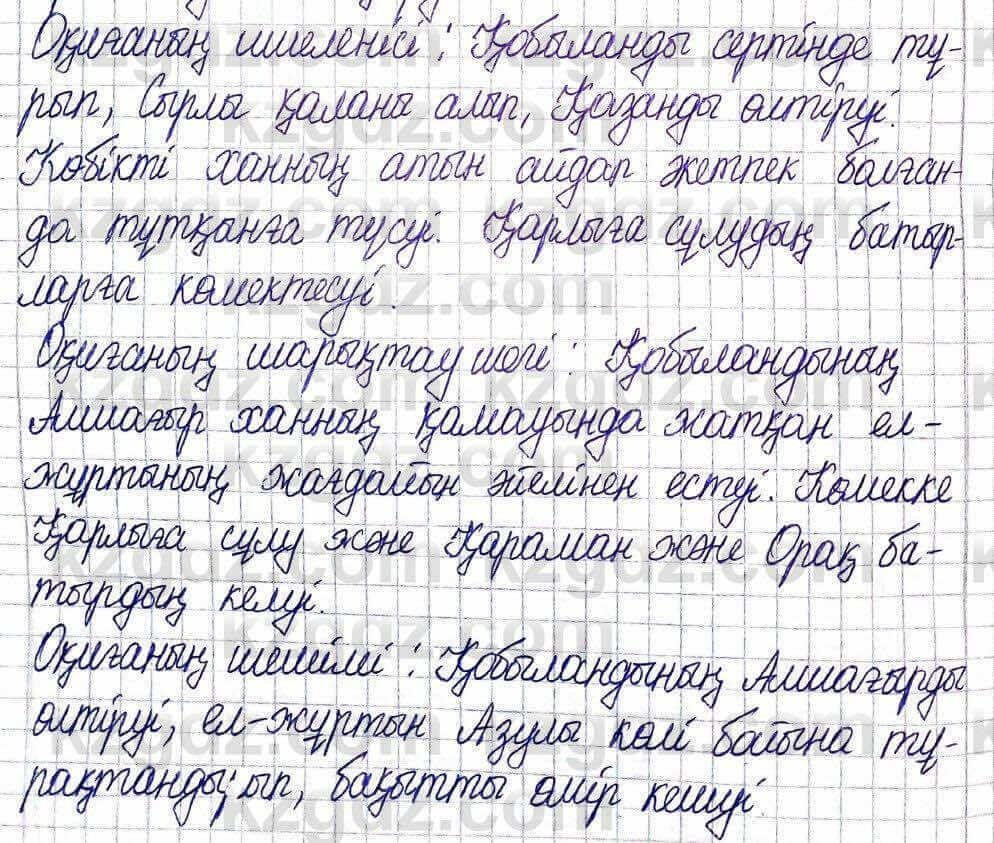 Оқиғаның шиеленісі: Қобыланды сертінде тұ-
рып, Сырлы қаланы алып, Қазанды өлтіруі.
Көбікті ханның атын айдап жетпек болған-
да тұтқынға түсуі. Қарлыға сұлудың батыр-
ларға көмектесуі.
Оқиғаның шарықтау шегі: Қобыландының
Алшағыр ханның қамауында жатқан ел-
жұртының жағдайын әйелінен естуі. Көмекке
Қарлыға сұлу және Қараман және Орақ ба-
тырдың келуі.
Оқиғаның шешімі: Қобыландының Алшағырды
өлтіруі, ел-жұртын Азулы көлі бойына тұ-
рақтандырып, бақытты өмір кешуі.
kzgdz.com